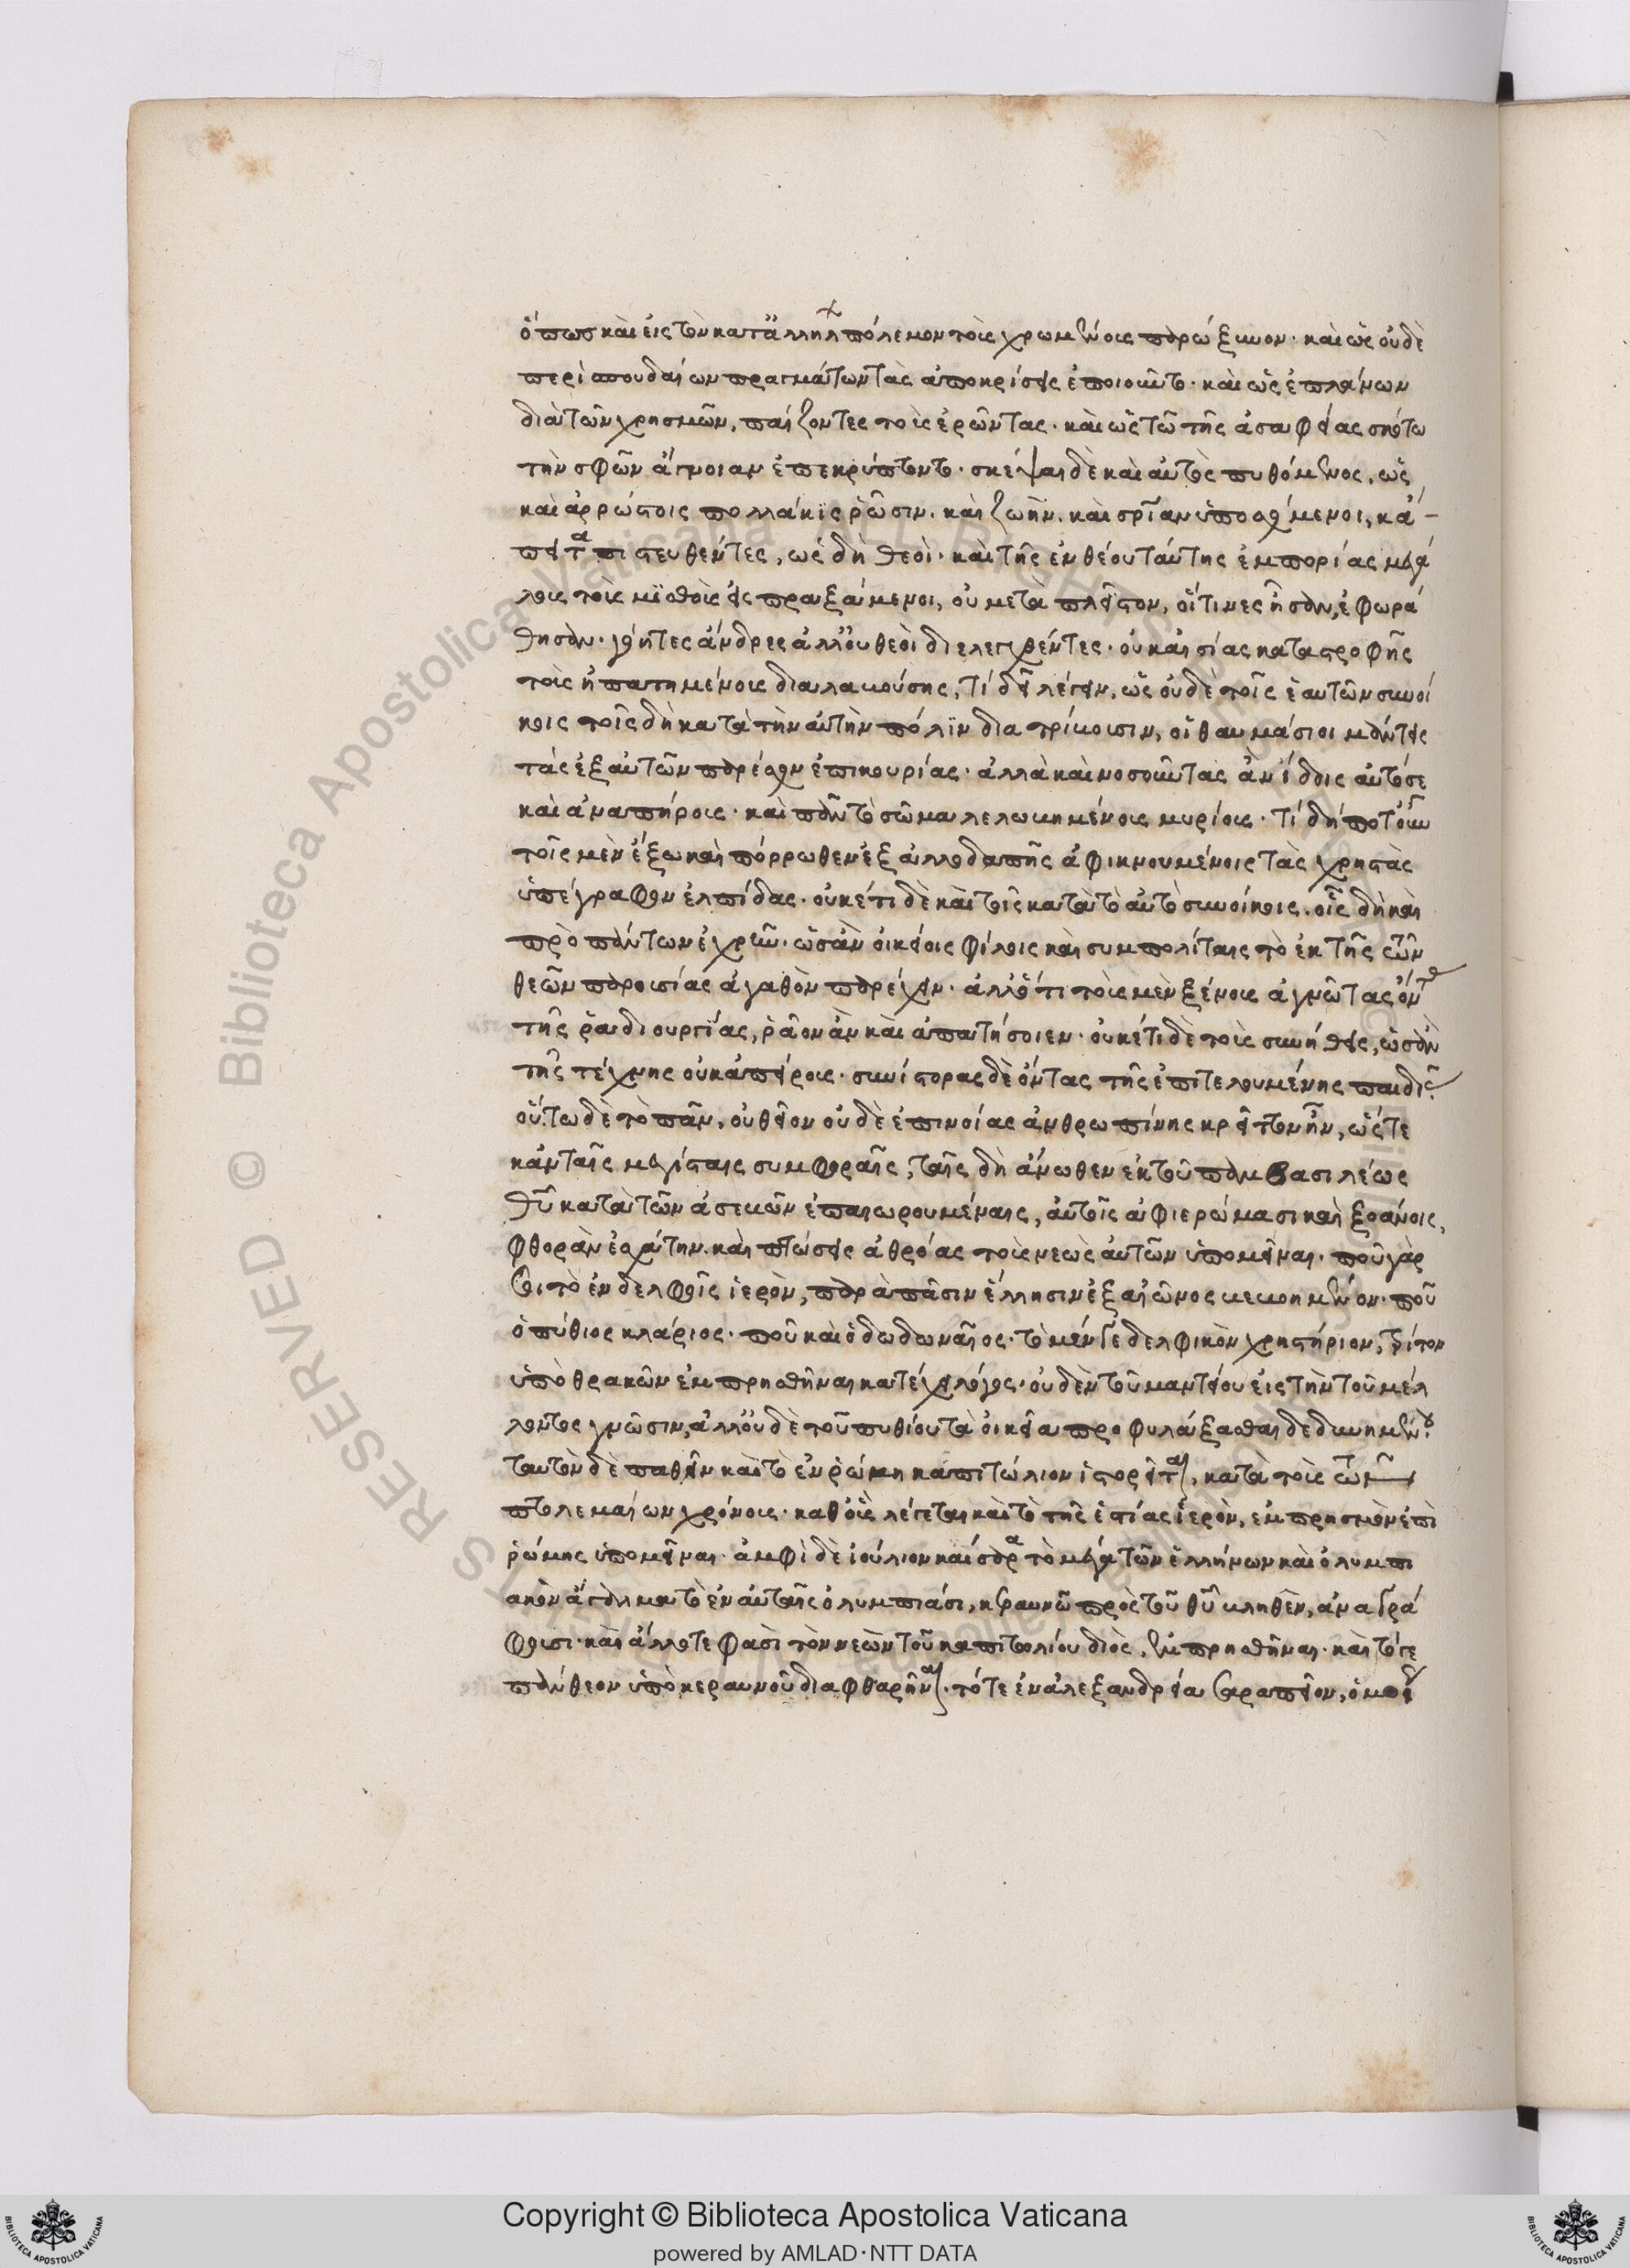 ὅπως καὶ εἰς τὸν κατ' ἀλλήλων πόλεμον τοὺς χρωμένους παρώξυνον· καὶ ὡς οὐδὲ
περὶ σπουδαίων πραγμάτων τὰς ἀποκρίσεις ἐποιοῦντο· καὶ ὡς ἐπλάνων
διὰ τῶν χρησμῶν, παίζοντες τοὺς ἐρῶντας· καὶ ὡς τῶ τῆς ἀσαφείας σκότω
τὴν σφῶν ἄγνοιαν ἐπεκρύπτοντο· σκέψαι δὲ καὶ αὐτὸς πυθόμενος, ὡς
καὶ ἀρρώστοις πολλάκις ῥῶσιν· καὶ ζωὴν· καὶ σρίαν ὑποσχόμενοι, κἄ-
πειτα πιστευθέντες, ὡς δὴ θεοὶ· καὶ τῆς ἐνθέου ταύτης ἐμπορίας μεγά
λους τοὺς μισθοὺς εἰσπραξάμενοι, οὐ μετὰ πλεῖστον, οἵτινες ἦσαν, ἐφωρά
θησαν· γόητες ἄνδρες ἀλλ' οὐ θεοὶ διελεγχθέντες· οὐκ αἰσίας καταστροφῆς
τοὺς ἠπατημένους διαλαβούσης, τί δεῖ λέγειν, ὡς οὐδὲ τοῖς ἑαυτῶν συνοί
κοις τοῖς δὴ κατὰ τὴν αὐτὴν πόλιν διατρίβουσιν, οἱ θαυμάσιοι μάντεις
τὰς ἐξ αὐτῶν παρέσχον ἐπικουρίας· ἀλλὰ καὶ νοσοῦντας ἂν ἴδοις αὐτόσε
καὶ ἀναπήρους· καὶ πᾶν τὸ σῶμα λελωβημένους μυρίους· τί δήποτ' οὖν
τοῖς μὲν ἔξω καὶ πόρρωθεν ἐξ ἀλλοδαπῆς ἀφικνουμένοις τὰς χρηστὰς
ὑπέγραφον ἐλπίδας· οὐκέτι δὲ καὶ τοῖς κατὰ τὸ αὐτὸ συνοίκοις· οἷς δὴ καὶ
πρὸ πάντων ἐχρῆν· ὡσὰν οἰκείοις φίλοις καὶ συμπολίταις τὸ ἐκ τῆς τῶν
θεῶν παρουσίας ἀγαθὸν παρέχειν· ἀλλ' ὅτι τοὺς μὲν ξένους ἀγνῶτας ὄντας
τῆς ῥαιδιουργίας, ῥᾶον ἂν καὶ ἀπατήσοιεν· οὐκέτι δὲ τοὺς συνήθεις, ὡσὰν
τῆς τέχνης οὐκ ἀπείρους· συνίστορας δὲ ὄντας τῆς ἐπιτελουμένης παιδιᾶς·
οὕτω δὲ τὸ πᾶν, οὐ θεῖον οὐδὲ ἐπινοίας ἀνθρωπίνης κρεῖττον ἦν, ὥστε
κἀν ταῖς μεγίσταις συμφοραῖς, ταῖς δὴ ἄνωθεν ἐκ τοῦ παμβασιλέως
θυ κατὰ τῶν ἀσεβῶν ἐπαιωρουμέναις, αὐτοῖς ἀφιερώμασι καὶ ξοάνοις,
φθορὰν ἐσχάτην· καὶ πτώσεις ἀθρόας τοὺς νεὼς αὐτῶν ὑπομεῖναι· ποῦ γάρ
σοι τὸ ἐν δελφοῖς ἱερὸν, παρὰ πᾶσιν ἕλλησιν ἐξ αἰῶνος βεβοημένον· ποῦ
ὁ πύθιος κλάριος· ποῦ καὶ ὁ δωδωναῖος· τὸ μέν γε δελφικὸν χρηστήριον, τρίτον
ὑπὸ θρακῶν ἐμπρησθῆναι κατέχει λόγος· οὐδὲν τοῦ μαντείου εἰς τὴν τοῦ μέλ
λοντος γνῶσιν, ἀλλ' οὐδὲ τοῦ πυθίου τὰ οἰκεῖα προφυλάξασθαι δεδυνημένου·
ταυτὸν δὲ παθεῖν καὶ τὸ ἐν ῥώμη καπιτώλιον ἱστορεῖται, κατὰ τοὺς τῶν
πτολεμαίων χρόνους· καθ' οὓς λέγεται καὶ τὸ τῆς ἑστίας ἱερὸν, ἐμπρησμὸν ἐπὶ
ῥώμης ὑπομεῖναι· ἀμφὶ δὲ ἰούλιον καίσαρα τὸ μέγα τῶν ἑλλήνων καὶ ὀλυμπι
ακὸν ἄγαλμα τὸ ἐν αὐταῖς ὀλυμπιάσι, κεραυνῶ πρὸς τοῦ θυ βληθὲν, ἀναγρά
φουσι· καὶ ἄλλοτε φασὶ τὸν νεὼν τοῦ καπιτωλίου διὸς, ἐμπρησθῆναι· καὶ τό τε
πάνθεον ὑπὸ κεραυνοῦ διαφθαρῆναι· τό τε ἐν ἀλεξανδρεία σαραπεῖον, ὁμοῦ